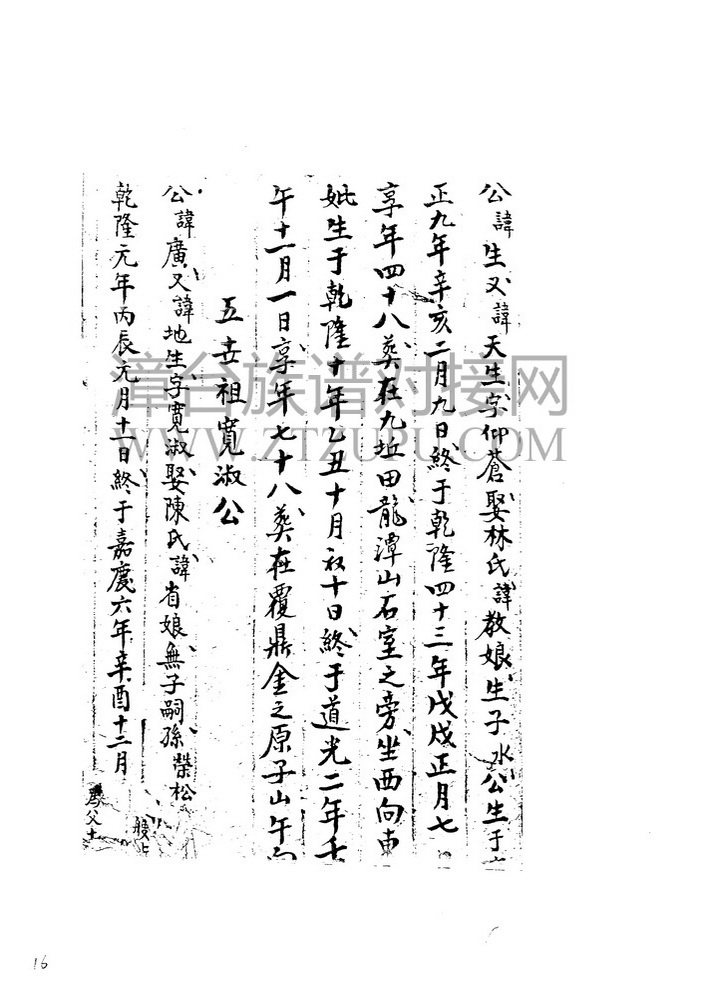 公諱生又諱天生字仰蒼娶林氏諱教娘生子水公生于
正九年辛亥二月九日終于乾隆四十三年戊戌正月七
享年四十八葬在九坵田龍潭山石室之旁坐西向東
妣生于乾隆十年乙丑十月初十日終于道光二年壬
午十一月一日享年七十八葬在覆鼎金之原子山午向
五世祖寬淑公
公諱廣又諱地生字寬淑娶陳氏諱省娘無子嗣孫榮松
乾隆元年丙辰元月十一日終于嘉慶六年辛酉十二月
漳台族谱对接网
WWW.ZTZUPU.COM
16